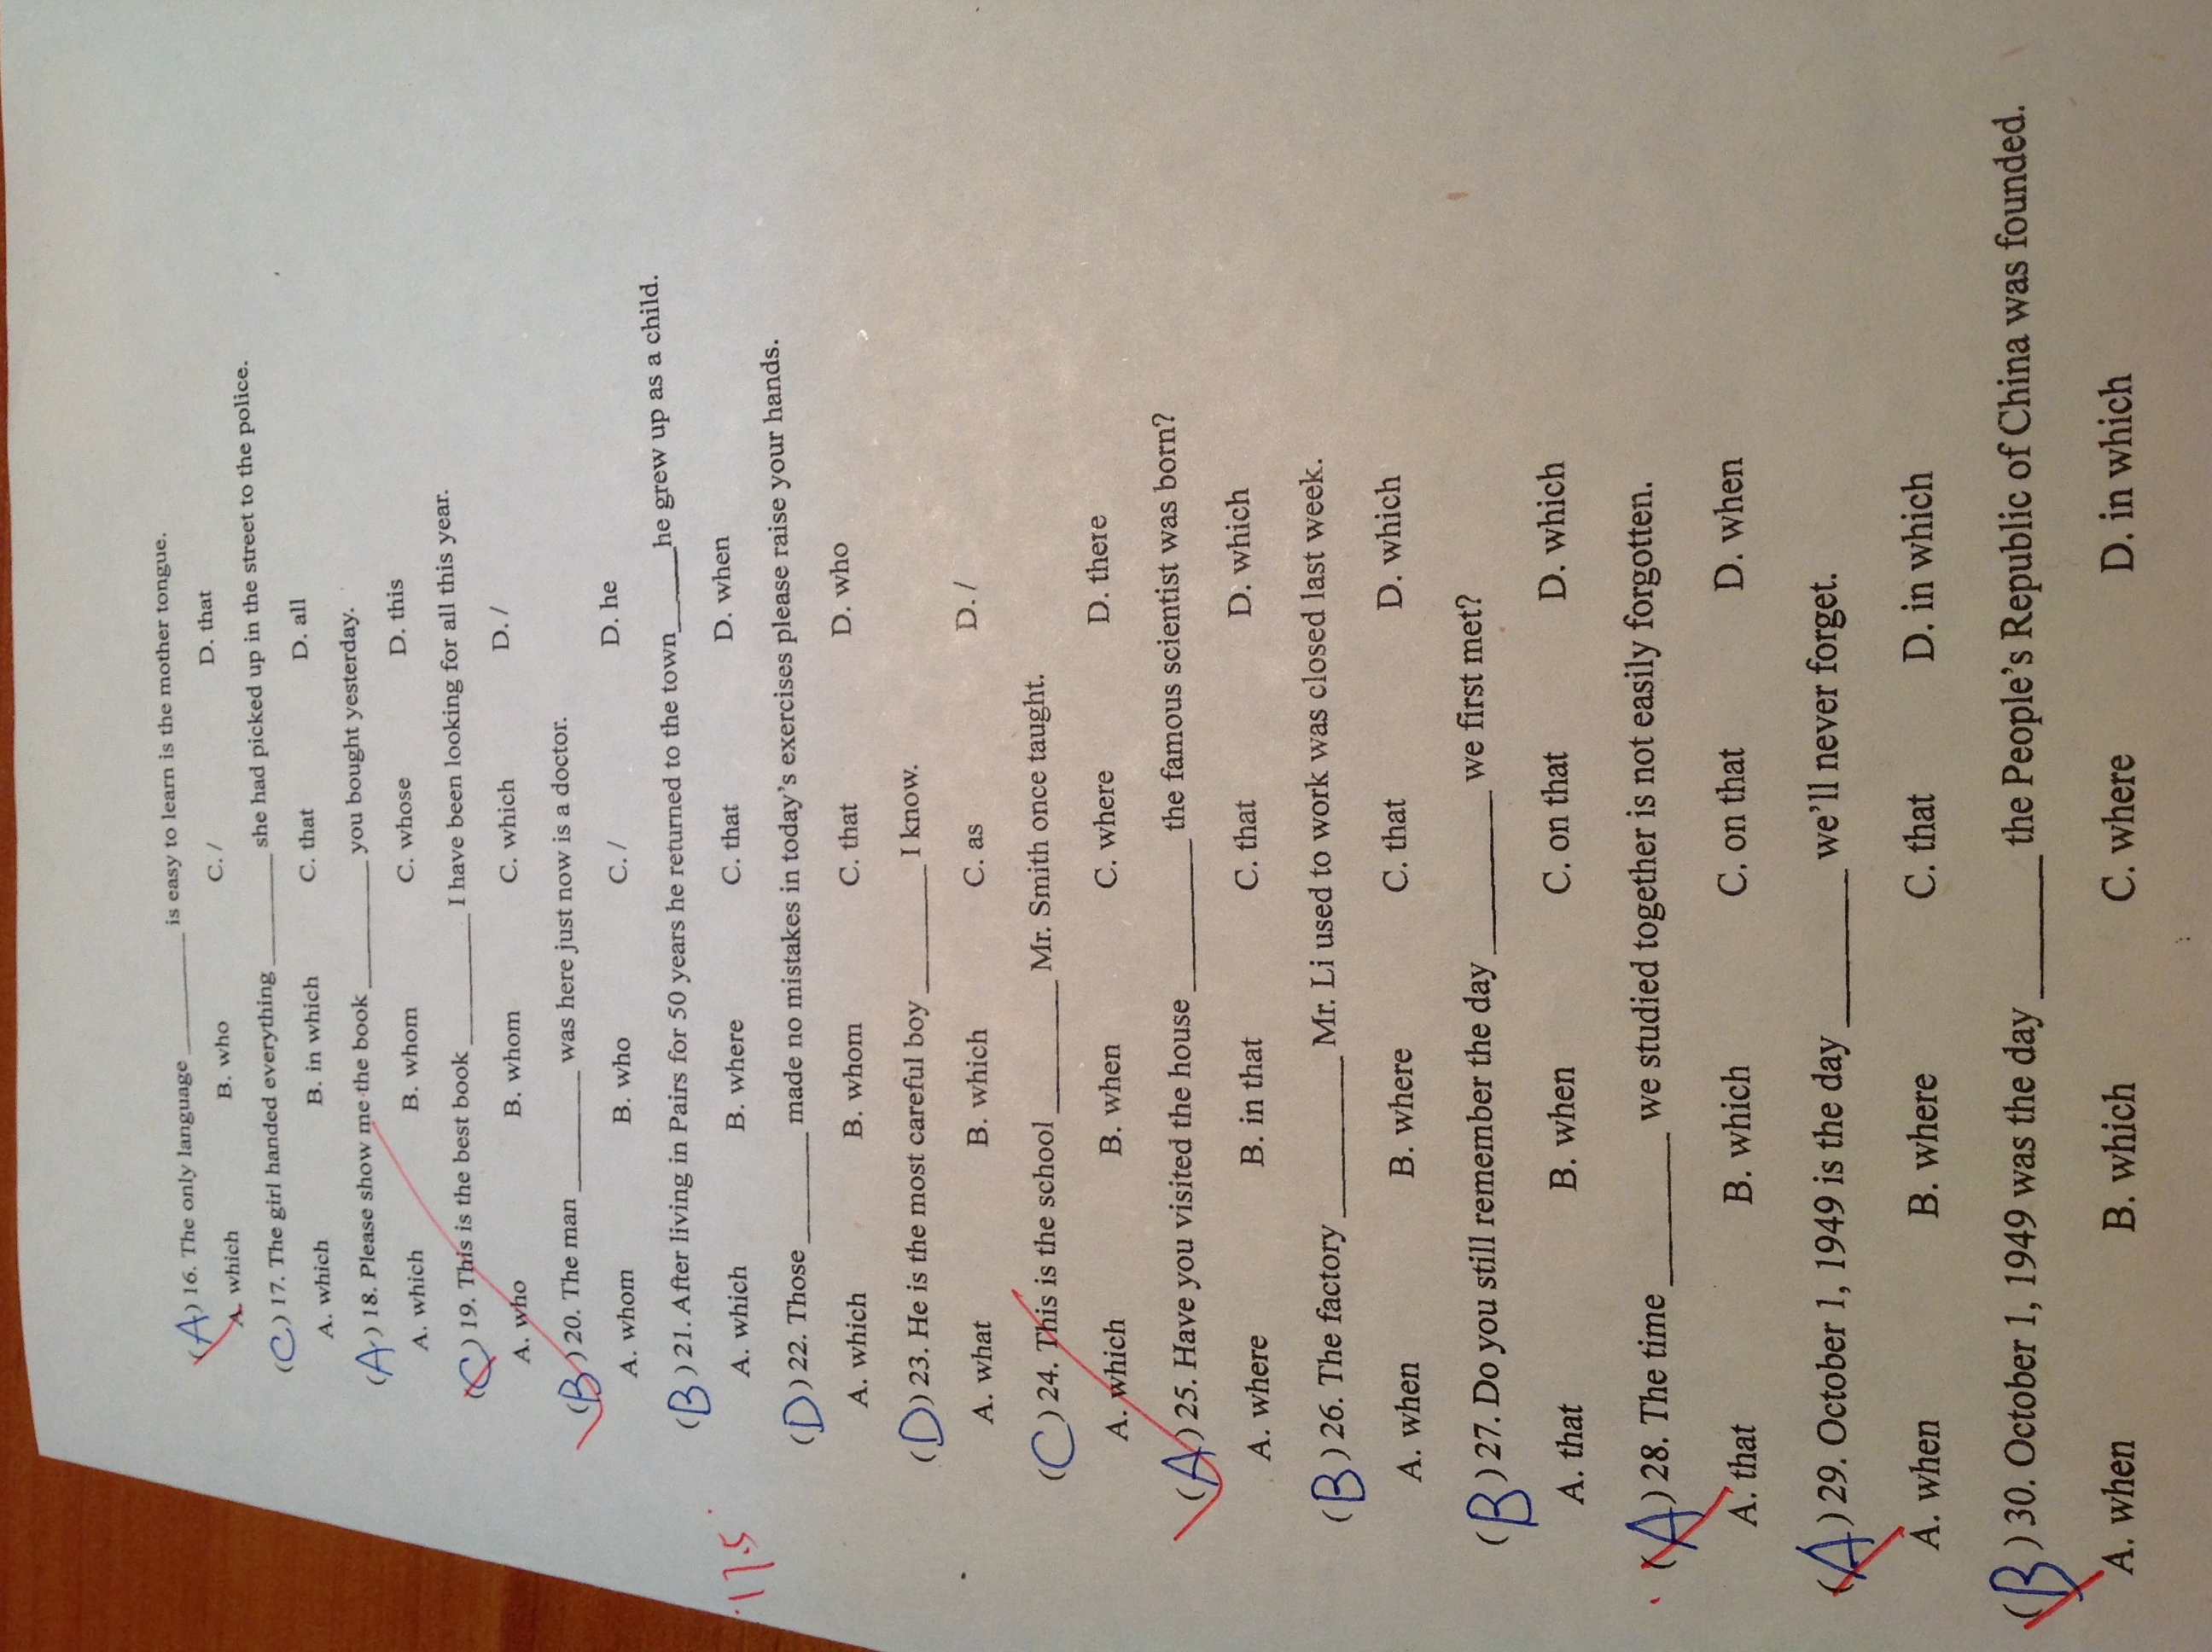 (A) 16. The only language ________ is easy to learn is the mother tongue.
A. which B. who C. / D. that
(C) 17. The girl handed everything ________ she had picked up in the street to the police.
A. which B. in which C. that D. all
(A) 18. Please show me the book ________ you bought yesterday.
A. which B. whom C. whose D. this
(C) 19. This is the best book ________ I have been looking for all this year.
A. who B. whom C. which D. /
(B) 20. The man ________ was here just now is a doctor.
A. whom B. who C. / D. he
(B) 21. After living in Pairs for 50 years he returned to the town_____he grew up as a child.
17.5
A. which B. where C. that D. when
(D) 22. Those _______ made no mistakes in today's exercises please raise your hands.
A. which B. whom C. that D. who
(D) 23. He is the most careful boy ________ I know.
A. what B. which C. as D. /
(C) 24. This is the school ________ Mr. Smith once taught.
A. which B. when C. where D. there
(A) 25. Have you visited the house ________ the famous scientist was born?
A. where B. in that C. that D. which
(B) 26. The factory ________ Mr. Li used to work was closed last week.
A. when B. where C. that D. which
(B) 27. Do you still remember the day ________ we first met?
A. that B. when C. on that D. which
(A) 28. The time ________ we studied together is not easily forgotten.
A. that B. which C. on that D. when
(A) 29. October 1, 1949 is the day ________ we'll never forget.
A. when B. where C. that D. in which
(B) 30. October 1, 1949 was the day _______ the People's Republic of China was founded.
A. when B. which C. where D. in which